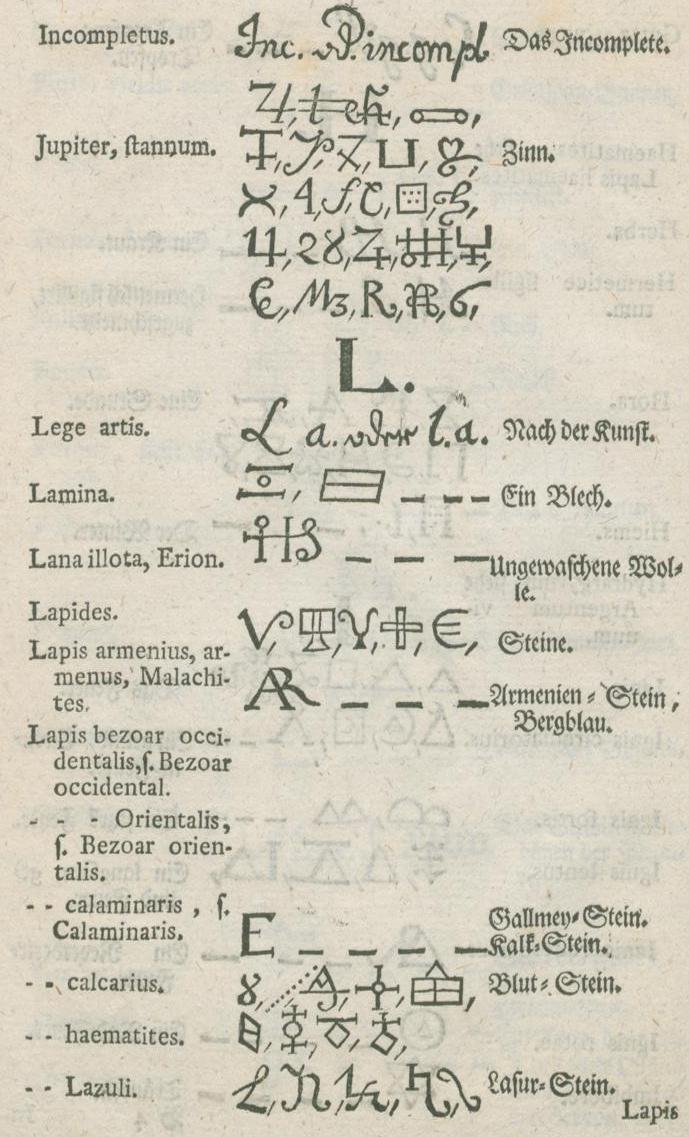 Incompletus. Inc. oder P. incompl Das Incomplete.
Jupiter, ſtannum. Zinn.
L.
Lege artis. L a. oder l. a. Nach der Kunſt.
Lamina. Ein Blech.
Lana illota, Erion. Ungewaſchene Wol-
le.
Lapides. Steine.
Lapis armenius, ar-
menus, Malachi-
tes. Armenien-Stein,
Bergblau.
Lapis bezoar occi-
dentalis, ſ. Bezoar
occidental.
- - Orientalis,
ſ. Bezoar orien-
talis.
- - calaminaris, ſ. Gallmey-Stein.
Calaminaris. E Kalk-Stein.
- - calcarius. Blut-Stein.
- - haematites.
- - Lazuli. Laſur-Stein.
Lapis